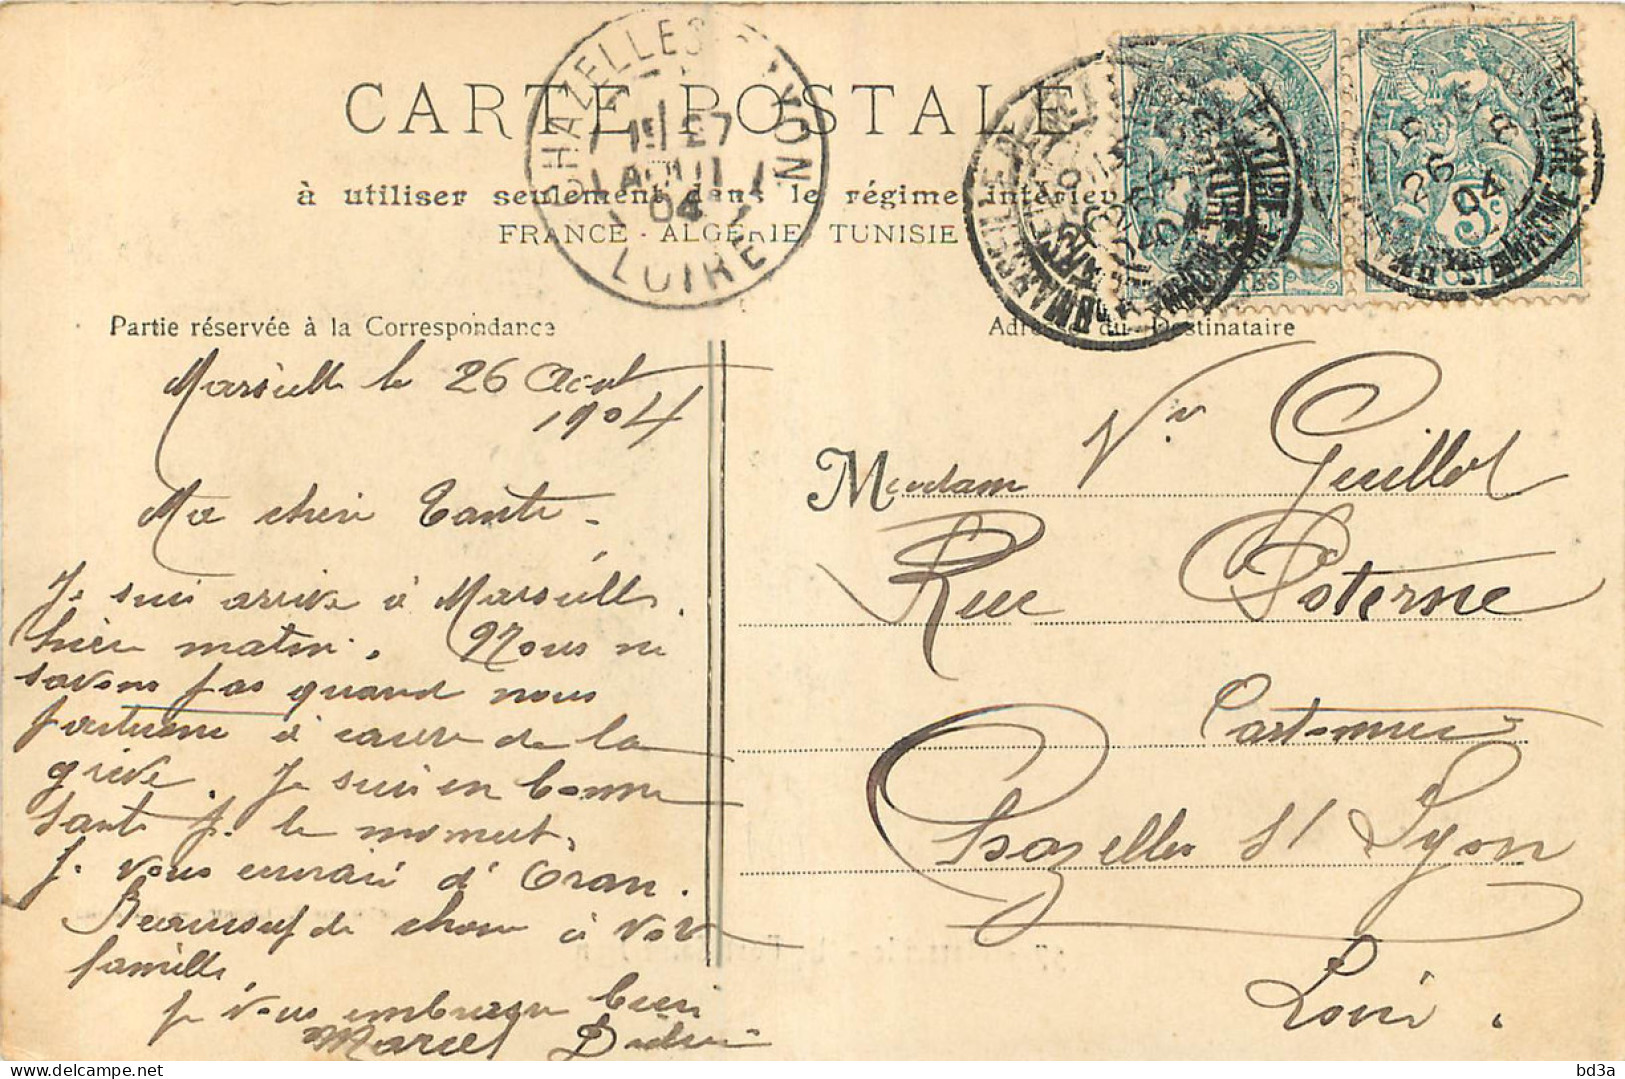 CARTE POSTALE
à utiliser seulement dans le régime intérieur
FRANCE - ALGÉRIE, TUNISIE
CHAZELLES-S-LYON
15 27
AOUT
04
LOIRE
26
04
5c
POSTES
Partie réservée à la Correspondance
Marseille le 26 Aout
1904
Ma chère Tante.
Je suis arrivé à Marseille
hier matin. Nous ne
savons pas quand nous
partirons à cause de la
grève. Je suis en bonne
santé p. le moment.
Je vous écrirai d'Oran.
Beaucoup de choses à votre
famille
Je vous embrasse bien
Marcel
Adresse du Destinataire
Madame Vve Guillot
Rue Poterne
Chazelles s/ Lyon
Loire.
bd3a